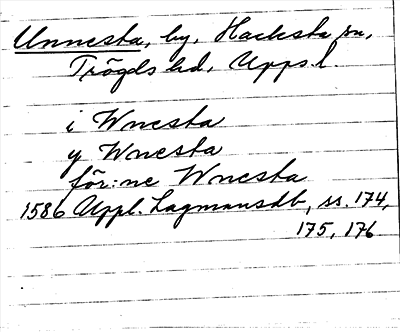 Unnesta, by, Hacksta sn,
Trögds hd, Upps. l.
i Wnesta
y Wnesta
för:ne Wnesta
1586 Uppl. Lagmansdb, ss. 174,
175, 176